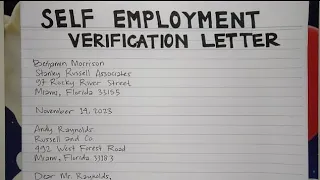 SELF EMPLOYMENT
VERIFICATION LETTER
Benjamin Morrison
Stanley Russell Associates
97 Rocky River Street
Miami, Florida 33155
November 29, 2023
Andy Raynolds
Russell and Co.
492 West Forest Road
Miami, Florida 33183
Dear Mr. Raynolds,